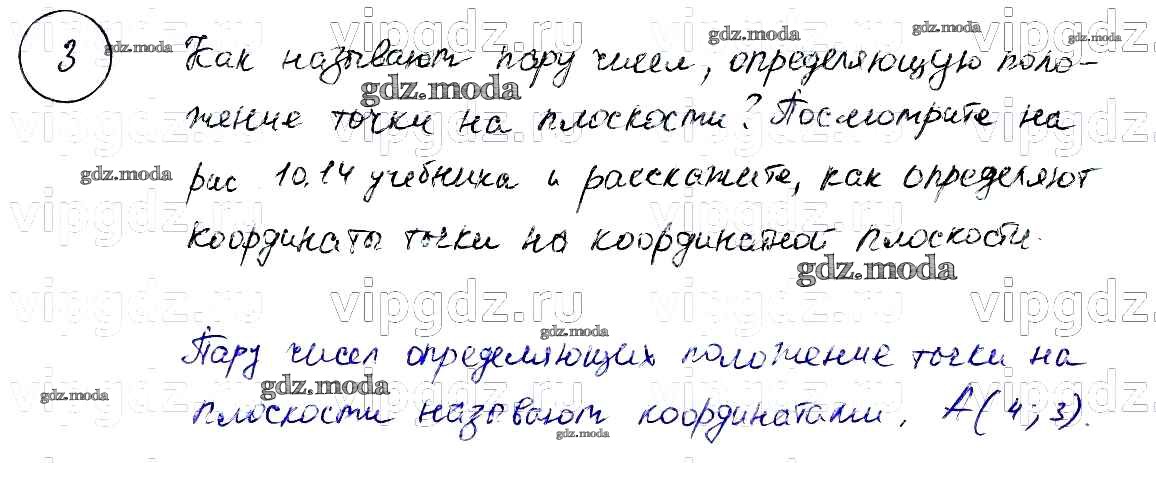 3
Как называют пару чисел, определяющую поло-
жение точки на плоскости? Посмотрите на
рис 10.14 учебника и расскажите, как определяют
координаты точки на координатной плоскости.
Пару чисел определяющих положение точки на
плоскости называют координатами. А(4;3).
vipgdz.ru
gdz.moda